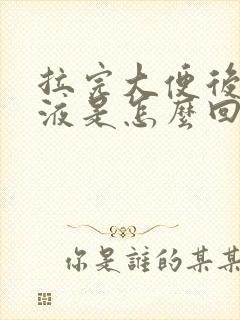 拉完大便後
液是怎麼回
你是誰的某某